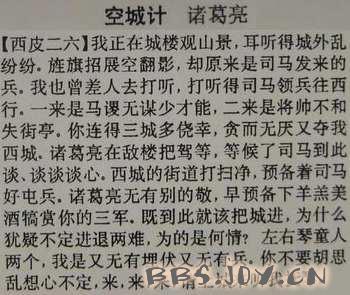 空城计 诸葛亮
【西皮二六】我正在城楼观山景，耳听得城外乱
纷纷。旌旗招展空翻影，却原来是司马发来的
兵。我也曾差人去打听，打听得司马领兵往西
行。一来是马谡无谋少才能，二来是将帅不和
失街亭。你连得三城多侥幸，贪而无厌又夺我
西城。诸葛亮在敌楼把驾等，等候了司马到此
谈、谈谈谈心。西城的街道打扫净，预备着司马
好屯兵。诸葛亮无有别的敬，早预备下羊羔美
酒犒赏你的三军。既到此就该把城进，为什么
犹疑不定进退两难，为的是何情？左右琴童人
两个，我是又无有埋伏又无有兵。你不要胡思
乱想心不定，来，来，来，请上
BBS.JOY.CN